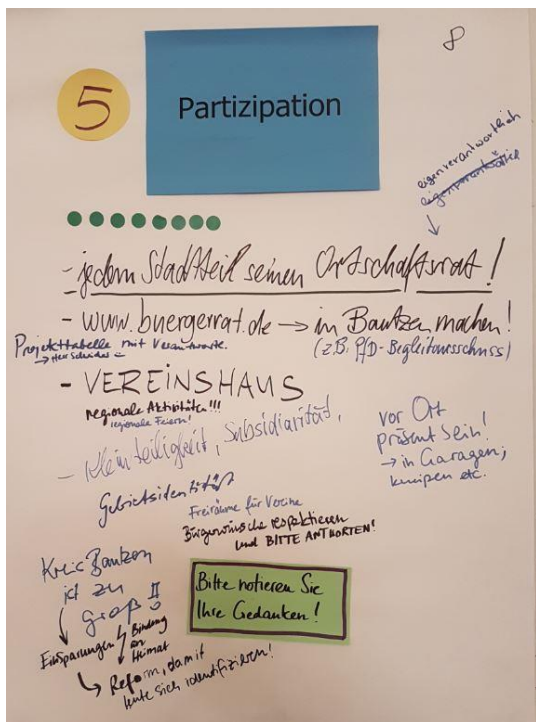 8
5
Partizipation
eigenverantwortlich
- jedem Stadtteil seinen Ortschaftsrat!
- www.buergerrat.de → in Bautzen machen!
(z.B. PfD-Begleitausschuss)
Projekttabelle mit Verantwortl.
→ Herr
- VEREINSHAUS
regionale Aktivitäten!!!
regionale Feiern!
- Kleinteiligkeit, Subsidiarität,
Gebietsidentität
vor Ort
präsent sein!
→ in Garagen,
kneipen etc.
Freiräume für Vereine
Bürgerwünsche respektieren
und BITTE ANTWORTEN!
Kreis Bautzen
ist zu
groß!!
Einsparungen
Bindung
an
Heimat
→ Reform, damit
leute sich identifizieren!
Bitte notieren Sie
Ihre Gedanken!